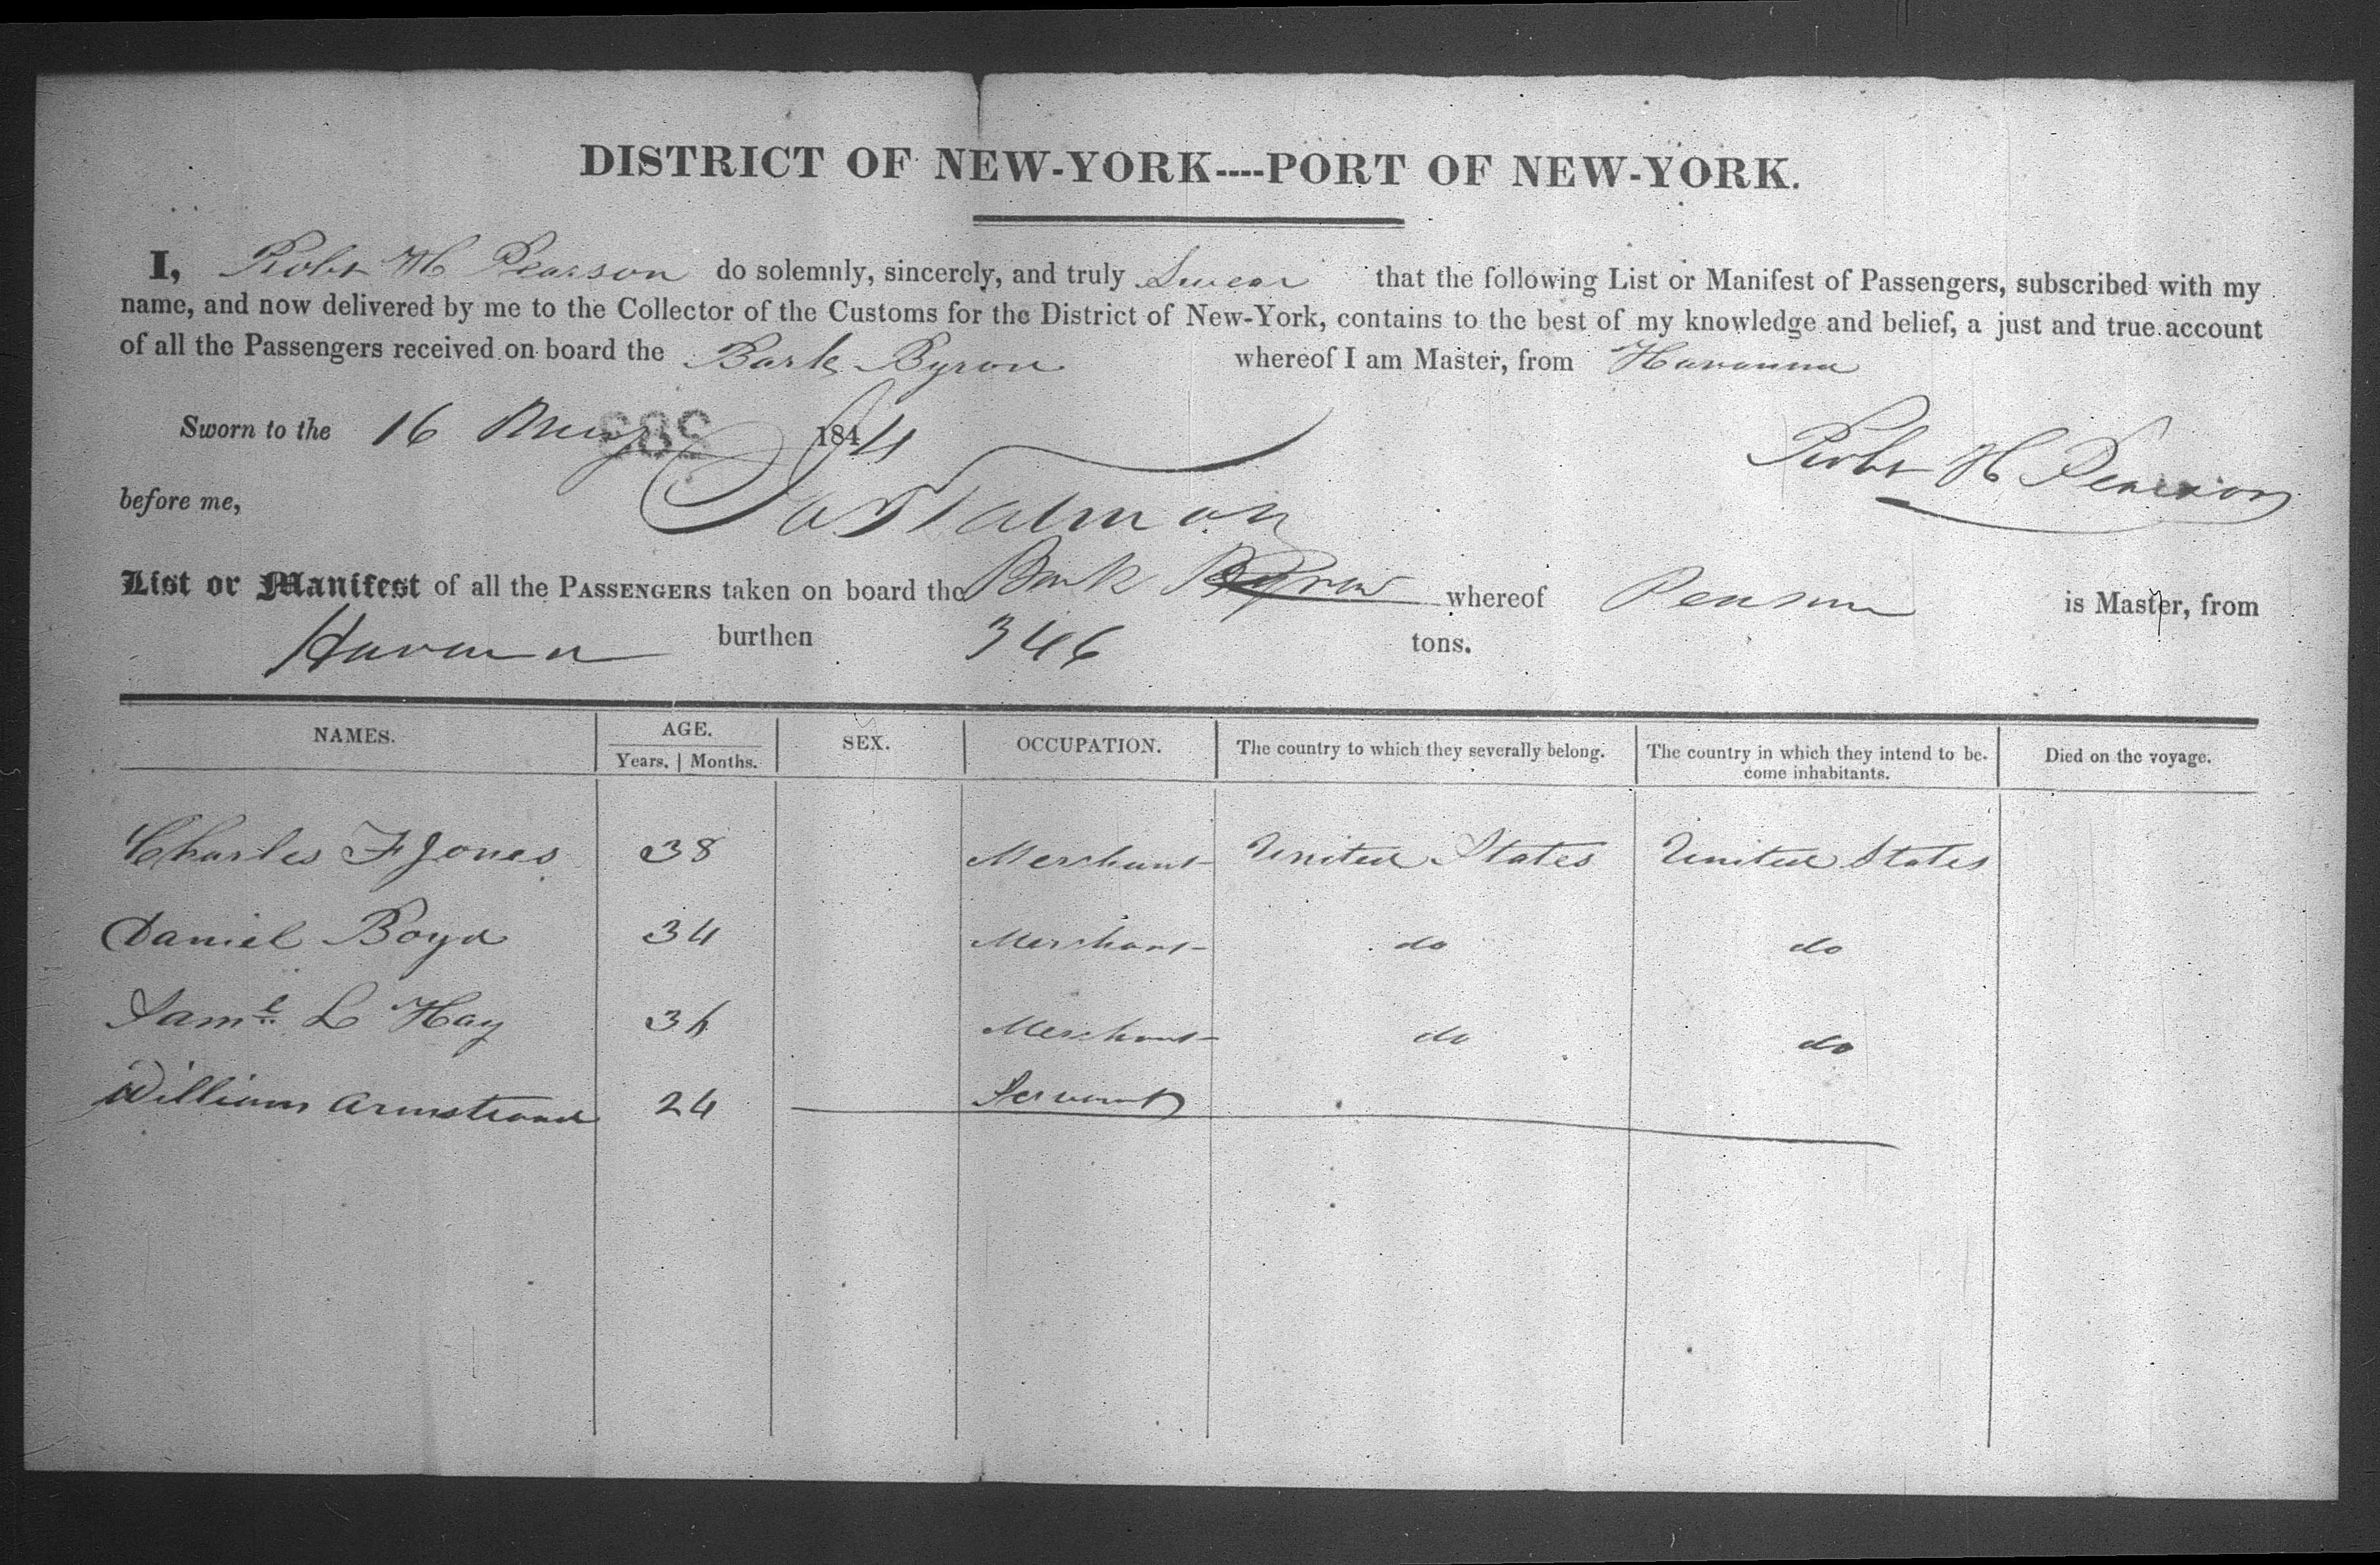 DISTRICT OF NEW-YORK----PORT OF NEW-YORK.
I, Robt H Pearson do solemnly, sincerely, and truly Swear that the following List or Manifest of Passengers, subscribed with my
name, and now delivered by me to the Collector of the Customs for the District of New-York, contains to the best of my knowledge and belief, a just and true account
of all the Passengers received on board the Bark Byron whereof I am Master, from Havanna
Sworn to the 16 May 1844
Robt H Pearson
before me,
List or Manifest of all the PASSENGERS taken on board the Bark Byron whereof Pearson is Master, from
Havana burthen 346 tons.
NAMES. AGE. SEX. OCCUPATION. The country to which they severally belong. The country in which they intend to be-
come inhabitants. Died on the voyage.
Years. Months.
Charles F Jones 38 Merchant United States United States
Daniel Boyd 34 Merchant do do
Saml L Hay 36 Merchant do do
William Armstrong 24 Servant